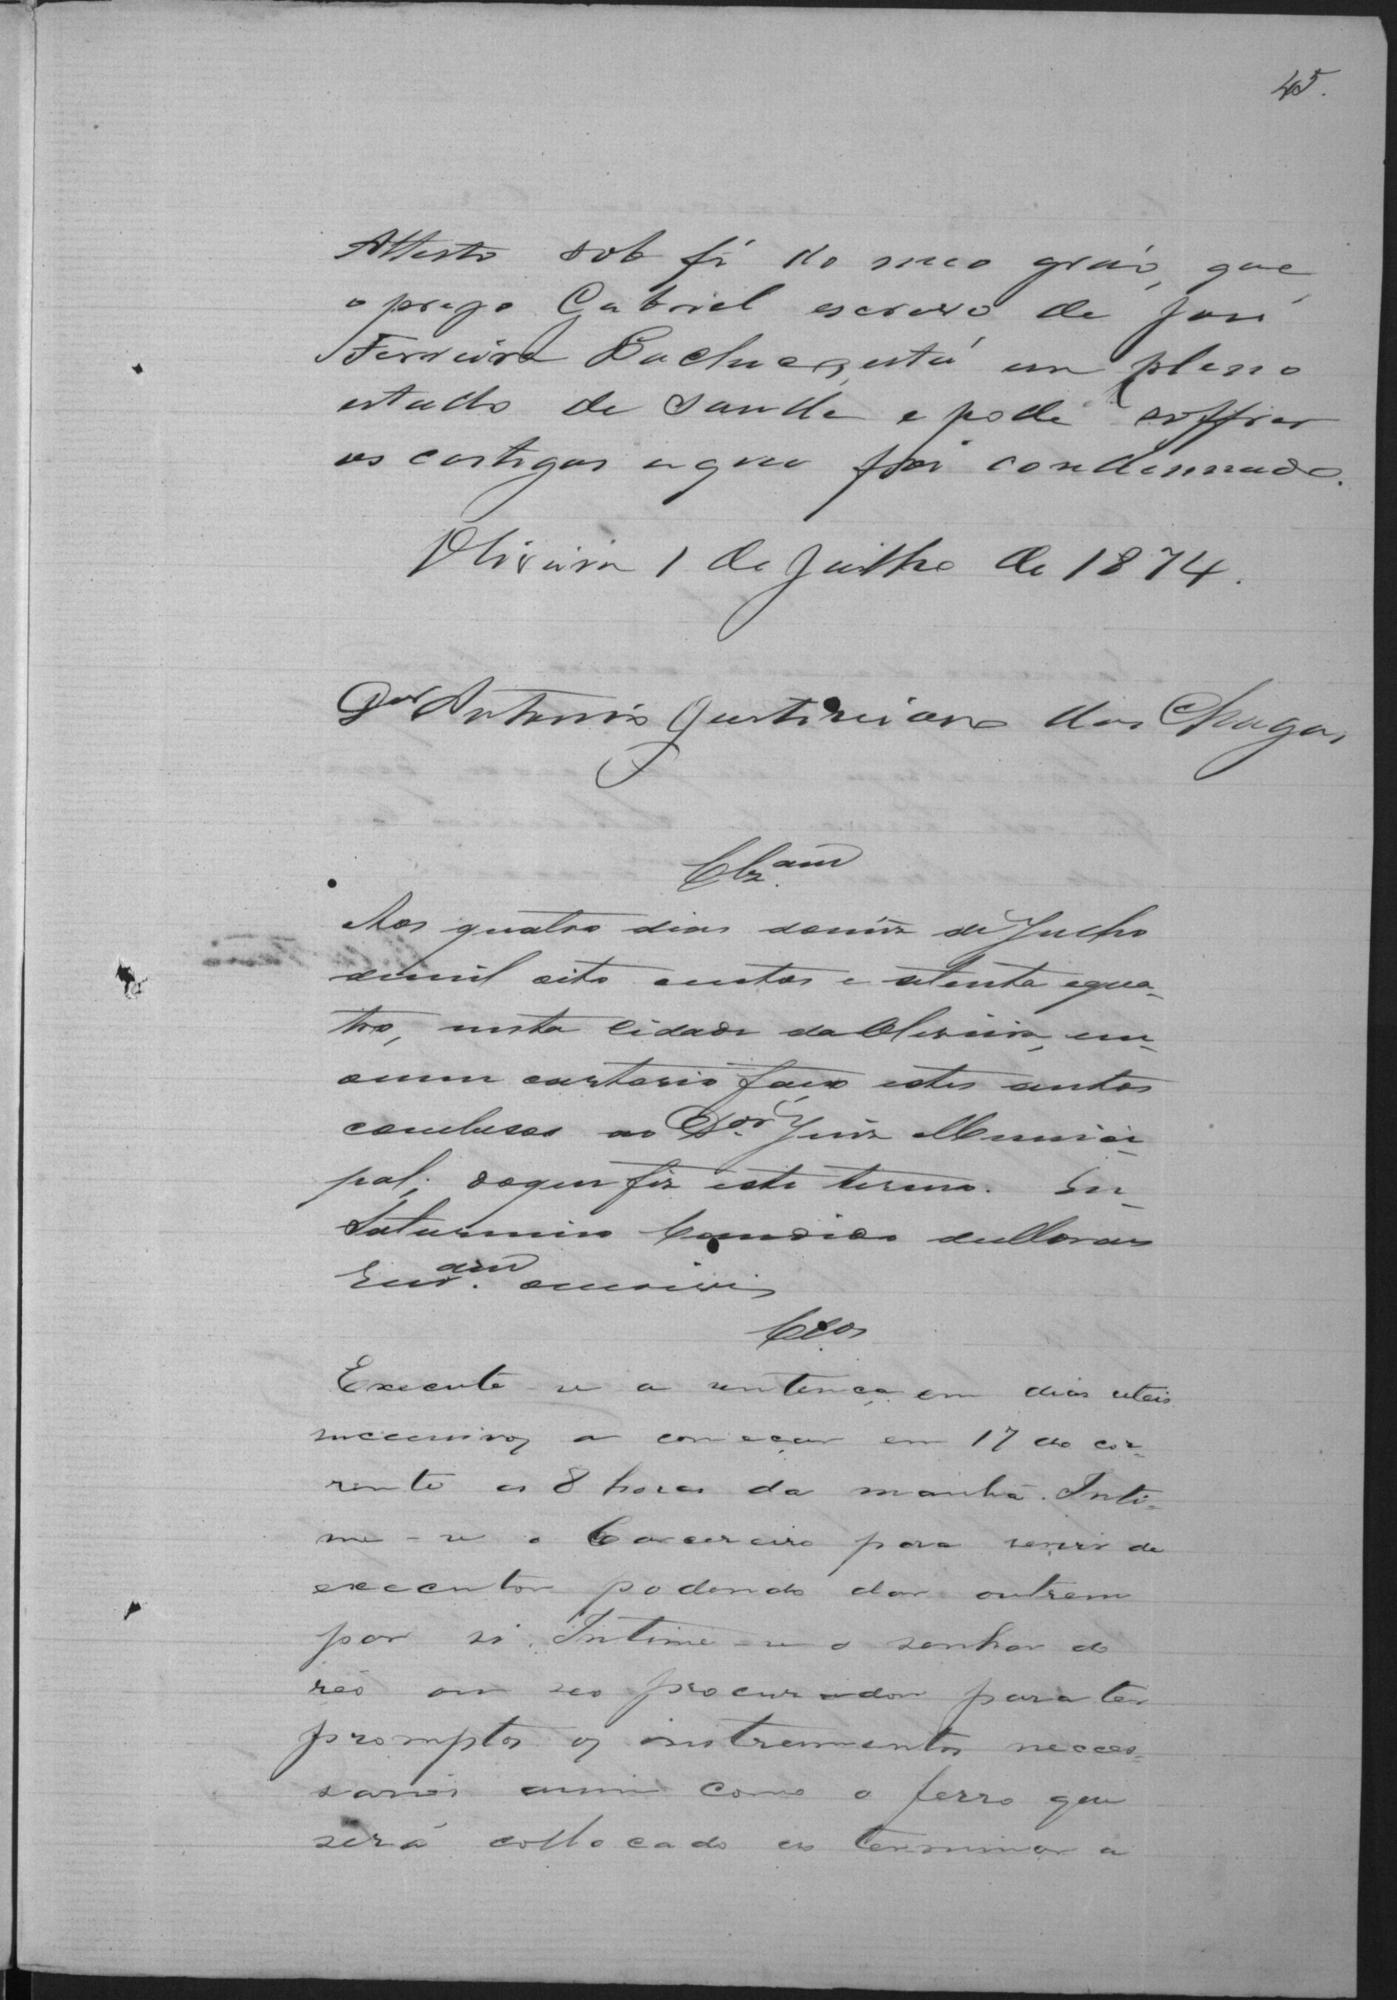 45.
Attesto sob fé do meo gráo, que
o prezo Gabriel escravo de José
Ferreira está em pleno
estado de saude e pode soffrer
os castigos a que foi condemnado.
Oliveira 1 de Julho de 1874.
Dor Antonio Justiniano das Chagas
Clz.am
Aos quatro dias domêz de Julho
demil oito centos e setenta equa-
tro, nesta Cidade da Oliveira, em-
omeu cartorio faço estes autos
conclusos ao Dor. Juiz Munici-
pal; doque fiz este termo. Eu-
Saturnino Candido deMoraes
Escr.am oescrevi
Clos
Execute-se a sentença em dias uteis
successivos a começar em 17 do cor-
rente as 8 horas da manhã. Inti-
me-se o Carcereiro para servir de
executor podendo dar outrem
por si. Intime-se o senhor do
réo ou seo procurador para ter
promptos os instrumentos neces-
sarios assim como o ferro que
será collocado ao terminar a